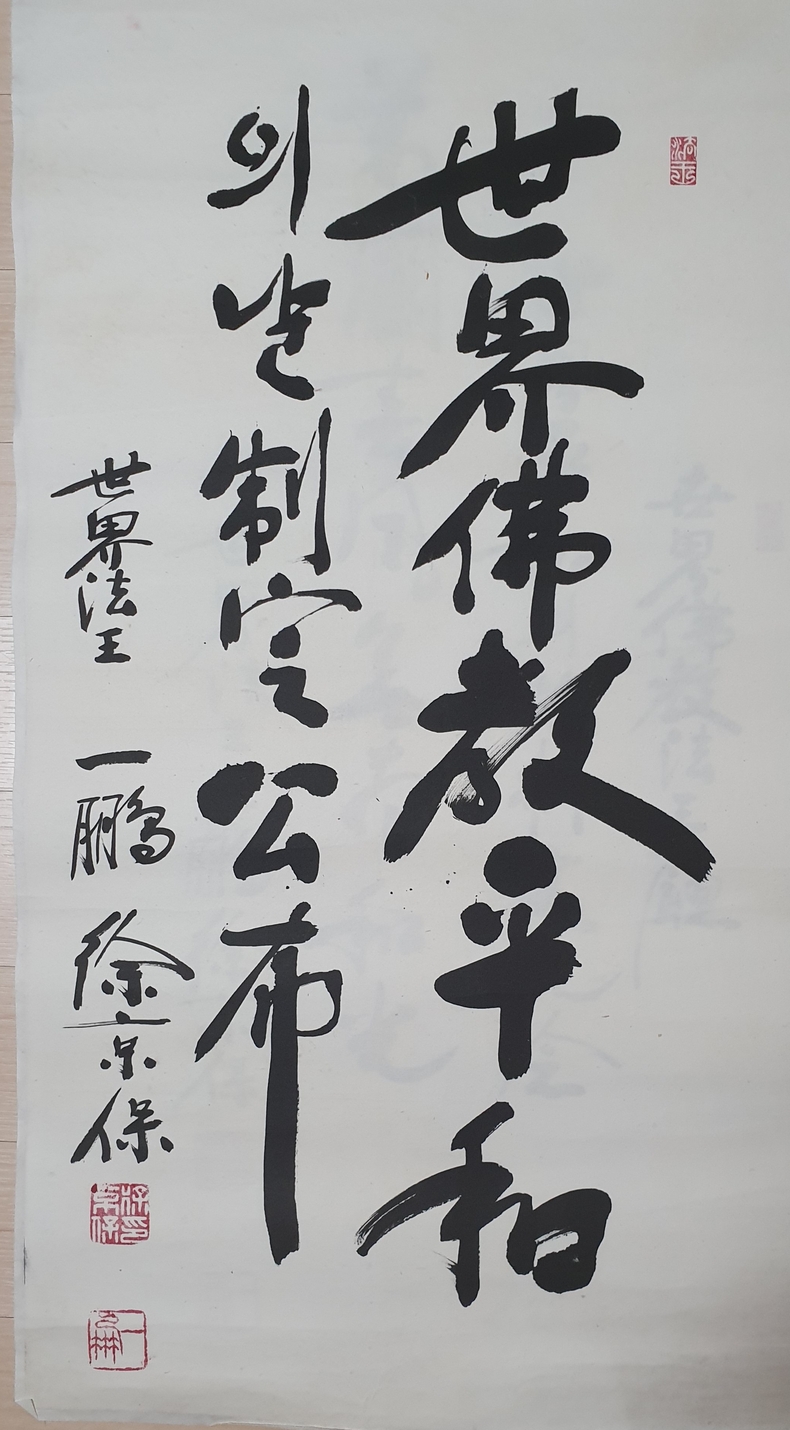 世界佛敎平和
의날制定公布
世界法王 一鵬 徐京保